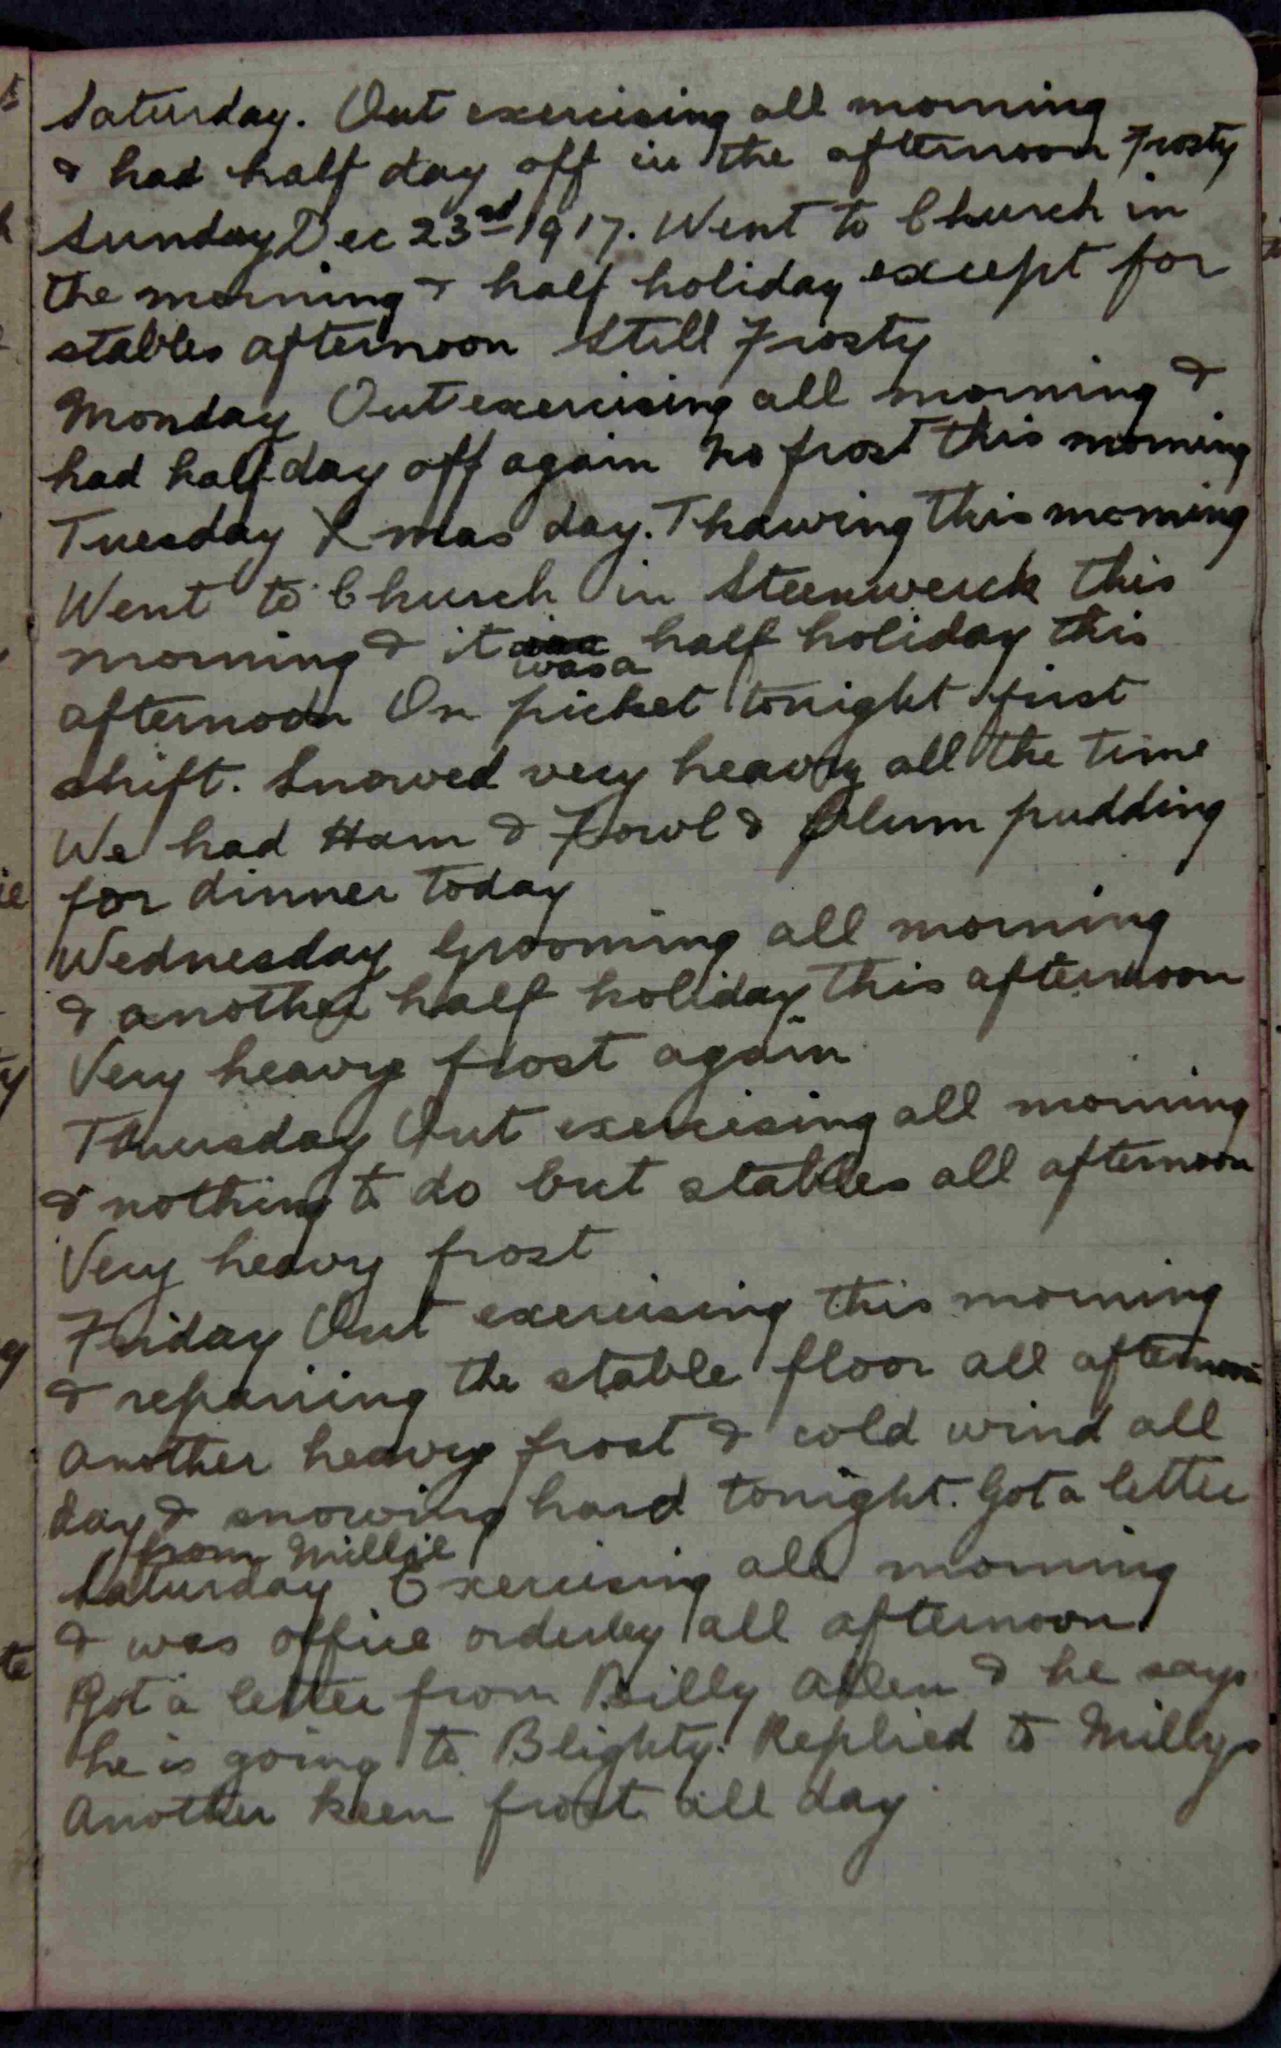 Saturday. Out exercising all morning
& had half day off in the afternoon Frosty
Sunday Dec 23rd 1917. Went to Church in
the morning & half holiday except for
stables afternoon Still Frosty
Monday Out exercising all morning &
had half day off again No frost this morning
Tuesday Xmas day. Thawing this morning
Went to Church in Steenwerck this
morning & it was a half holiday this
afternoon On picket tonight first
shift. Snowed very heavy all the time
We had Ham & Fowl & Plum pudding
for dinner today
Wednesday Grooming all morning
& another half holiday this afternoon
Very heavy frost again
Thursday Out exercising all morning
& nothing to do but stables all afternoon
Very heavy frost
Friday Out exercising this morning
& repairing the stable floor all afternoon
Another heavy frost & cold wind all
day & snowing hard tonight. Got a letter
from Millie
Saturday Exercising all morning
& was office orderley all afternoon
Got a letter from Billy Allen & he says
he is going to Blighty. Replied to Millys
Another keen frost all day